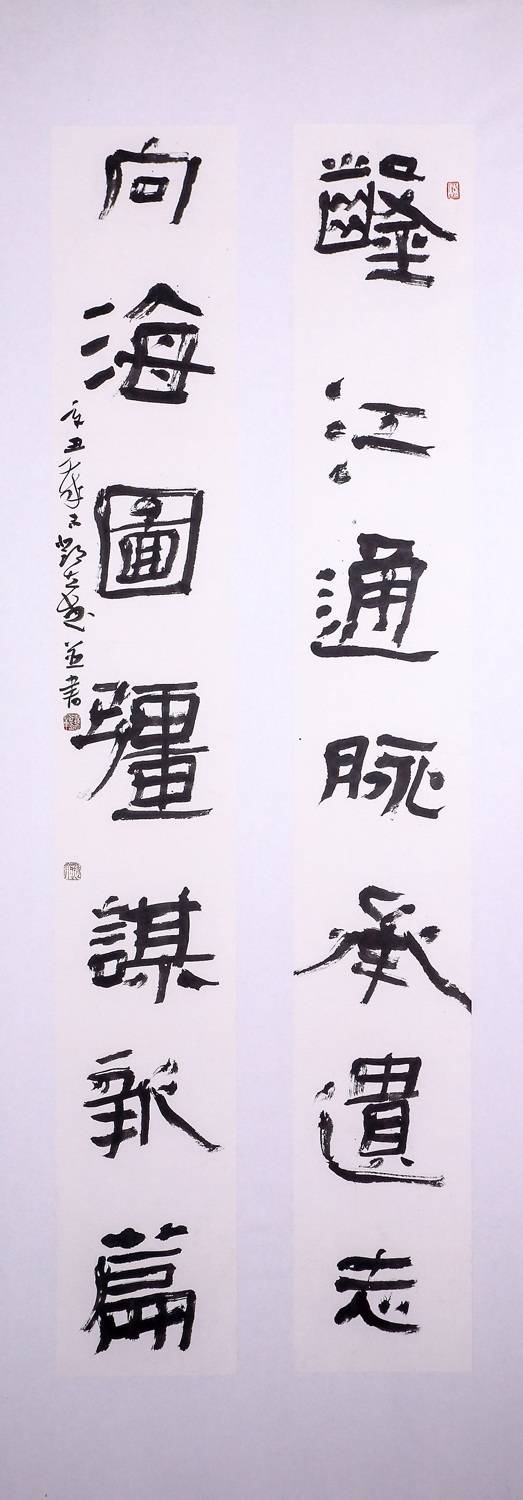 鑿江通脈承遺志
向海圖疆謀新篇
辛丑 並書